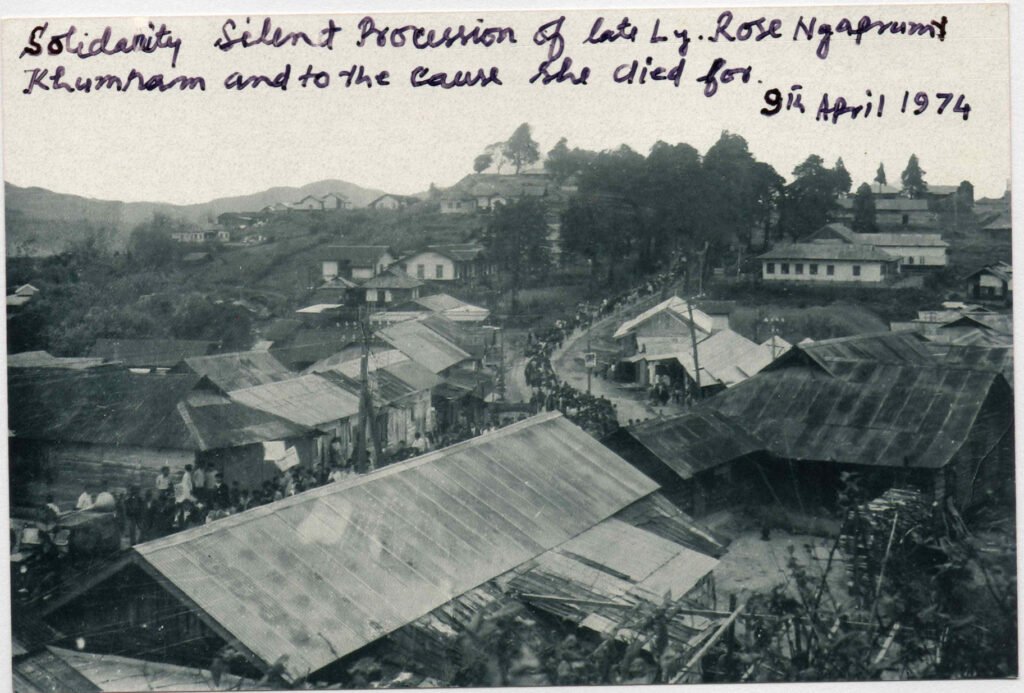 Solidarity Silent Procession of late Ly. Rose Ngaprumi
Khumram and to the cause she died for.
9th April 1974